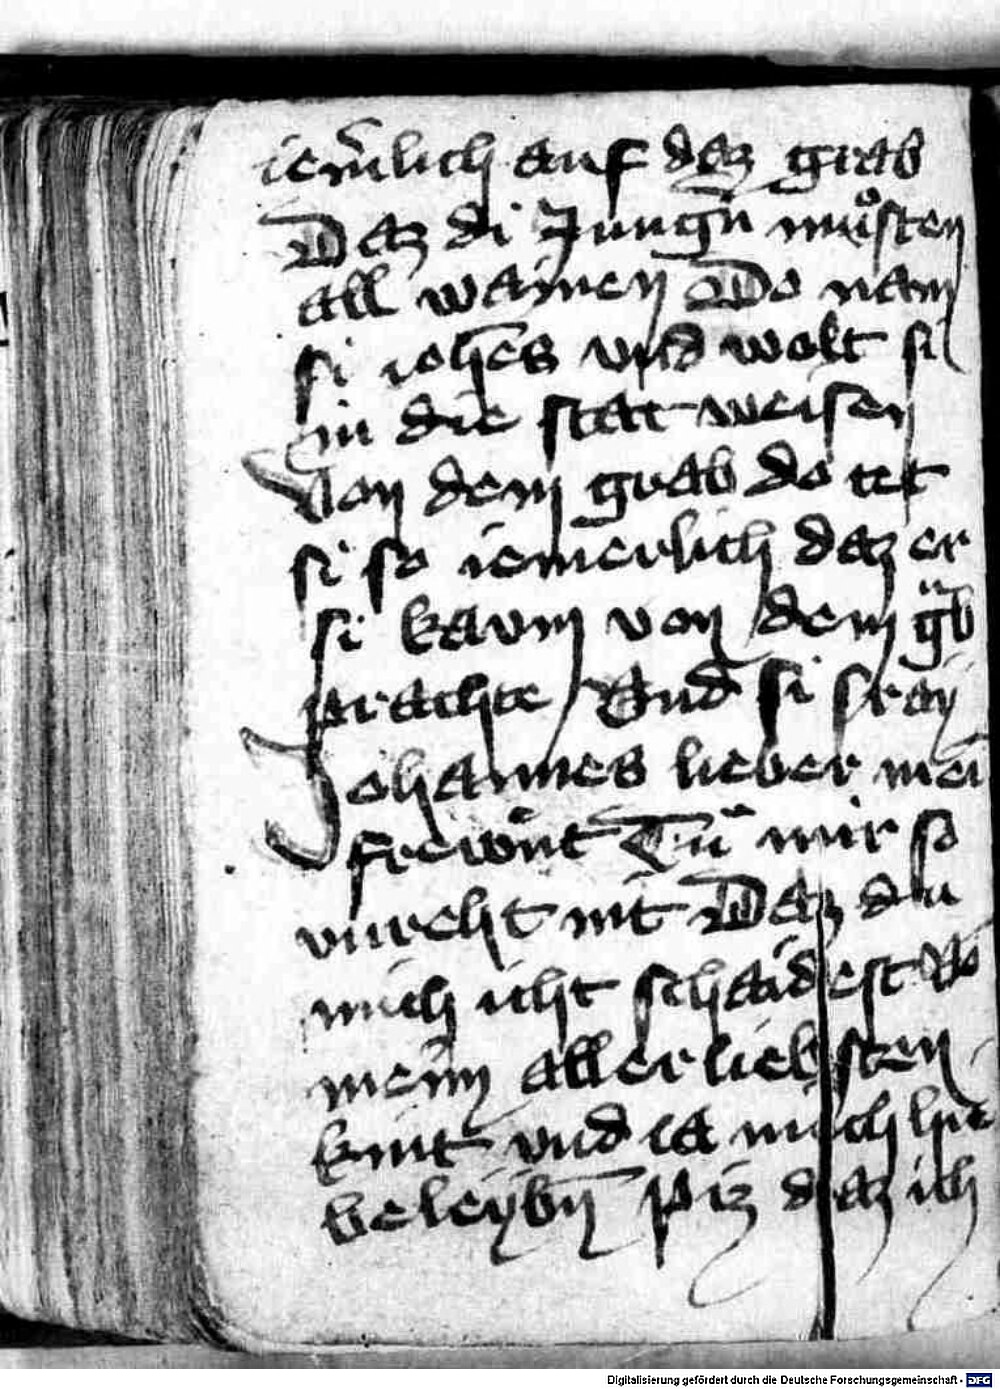 iem̄lich auf daz grab
Daz di Junḡn muͦsten
all wainen Do nam
si ioh̄es vnd wolt si
in die stat weisen
Von dem grab do tet
si so iemerlich daz er
si kaum von dem gͣb
prachte Vnd si sray
Johannes lieber mei̅
frewnt Tu mir so
vnrecht nit Daz du
mich icht schaidest vo̅
mein̄ allerliebsten
kint vnd la mich hie
beleÿbn̄ Piz daz ich
Digitalisierung gefördert durch die Deutsche Forschungsgemeinschaft - DFG